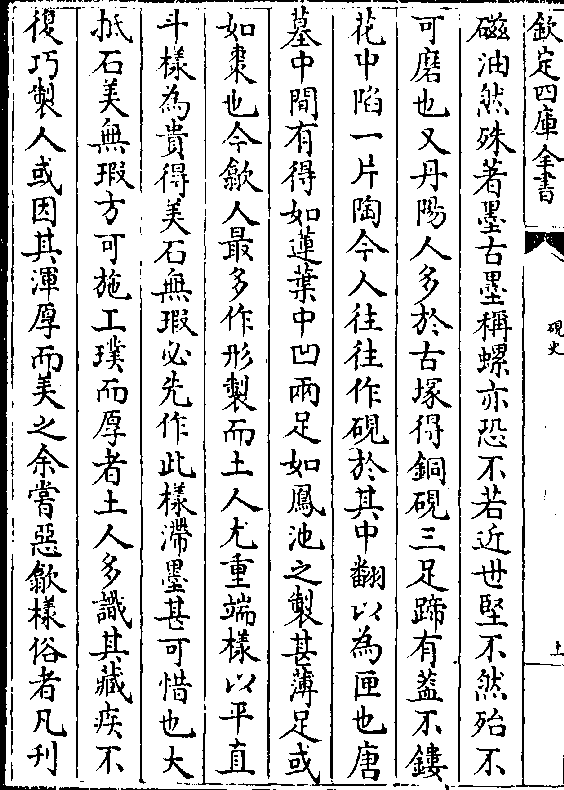 欽定四庫全書
硯史
上
磁油然殊著墨古墨稱螺亦恐不若近世堅不然殆不
可磨也又丹陽人多於古塚得銅硯三足蹄有蓋不鏤
花中陷一片陶今人往往作硯於其中翻以為匣也唐
墓中間有得如蓮葉中凹兩足如鳳池之製甚薄足或
如棗也今歙人最多作形製而土人尤重端樣以平直
斗樣為貴得美石無瑕必先作此樣滯墨甚可惜也大
抵石美無瑕方可施工璞而厚者土人多識其藏疾不
復巧製人或因其渾厚而美之余嘗惡歙樣俗者凡刋